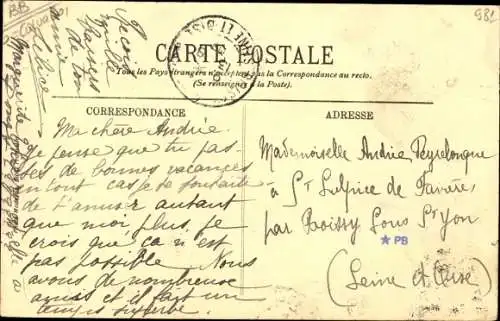 BB
981
CARTE POSTALE
Tous les Pays étrangers n'acceptent pas la Correspondance au recto.
(Se renseigner à la Poste).
CORRESPONDANCE
Ma chère Andrée.
Je pense que tu pas-
ses de bonnes vacances
en tout cas je te souhaite
de t'amuser autant
que moi plus, je
crois que ça n'est
pas possible. Nous
avons de nombreuse
amies et il fait un
temps superbe.
Reçois
mille
baisers
de ton
amie
ADRESSE
Mademoiselle Andrée Peyrelongue
à St Sulpice de Favière,
par Boissy Sous St Yon
(Seine et Oise)
PB
Marguerite